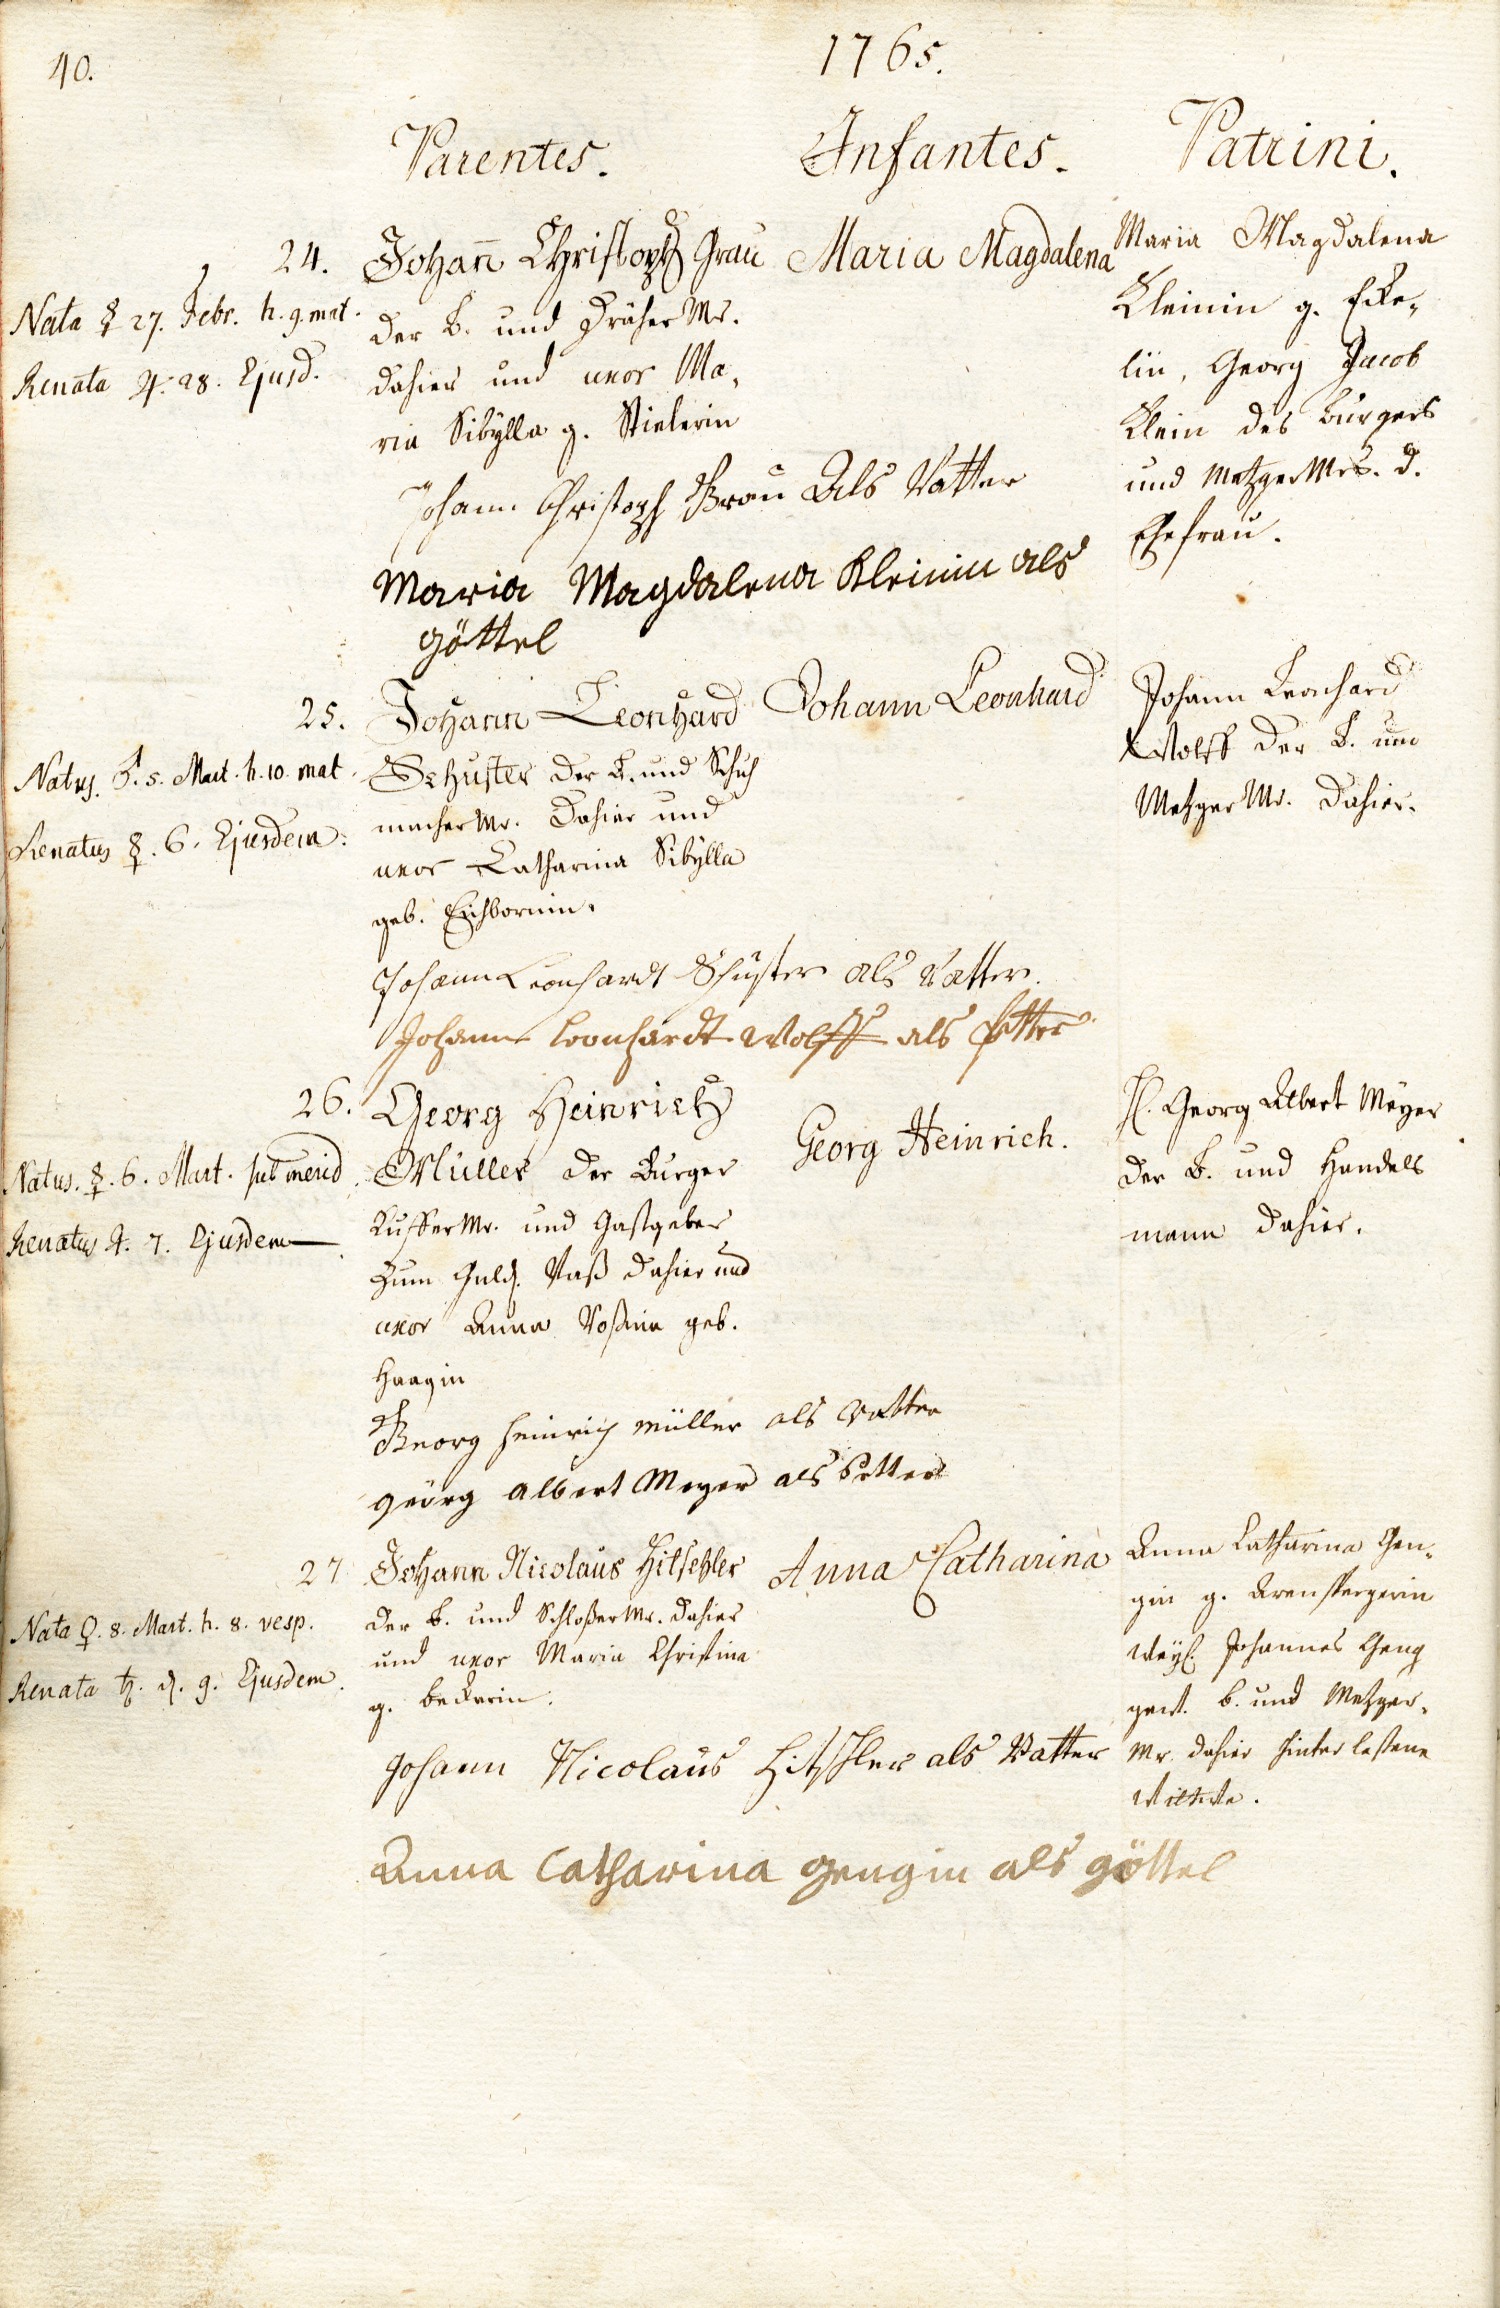 40.
1765.
Parentes.
Infantes.
Patrini.
24.
Nata ☿ 27. Febr. h. 9. mat.
Renata ♃. 28. Ejusd.
Johan̄ Christoph Grau
der B. und Dräher Mr.
dahier und uxor Ma-
ria Sibylla g. Stielerin
Maria Magdalena
Maria Magdalena
Kleinin g. Eke-
lin, Georg Jacob
Klein des Burgers
und Metzger Mrs. d.
Ehefrau.
Johann Christoph Grau Als Vatter
Maria Magdalena Kleinin als
göttel
25.
Natus. 5. Mart. h. 10. mat.
Renatus ☿. 6. Ejusdem.
Johann Leonhard
Schuster der B. und Schuh
macher Mr. dahier und
uxor Catharina Sibylla
geb. Eichbornin.
Johann Leonhard
Johann Leonhard
Wolff der B. und
Metzger Mr. dahier.
Johann Leonhardt Schuster als Vatter.
Johann Leonhardt Wolff als Petter
26.
Natus. ☿. 6. Mart. sub merid.
Renatus ♃. 7. Ejusdem
Georg Heinrich
Müller der Burger
Kuffer Mr. und Gastgeber
zum Guld. Vaß dahier und
uxor Anna Rosina geb.
Haagin
Georg Heinrich.
H. Georg Albert Meyer
der B. und Handels
mann dahier.
Georg Heinrich Müller als Vatter
georg albert Meyer als Petter
27
Nata ♀. 8. Mart. h. 8. vesp.
Renata ♄. d. 9. Ejusdem.
Johann Nicolaus Hitschler
der B. und Schloßer Mr. dahier
und uxor Maria Christina
g. Beckerin.
Anna Catharina
Anna Catharina Gen-
gin g. Arenspergerin
weyl. Johannes Geng
gew. B. und Metzger-
Mr. dahier hinterlaßene
Wittwe.
Johann Nicolaus Hitschler als Vatter
Anna Catharina gengin als göttel